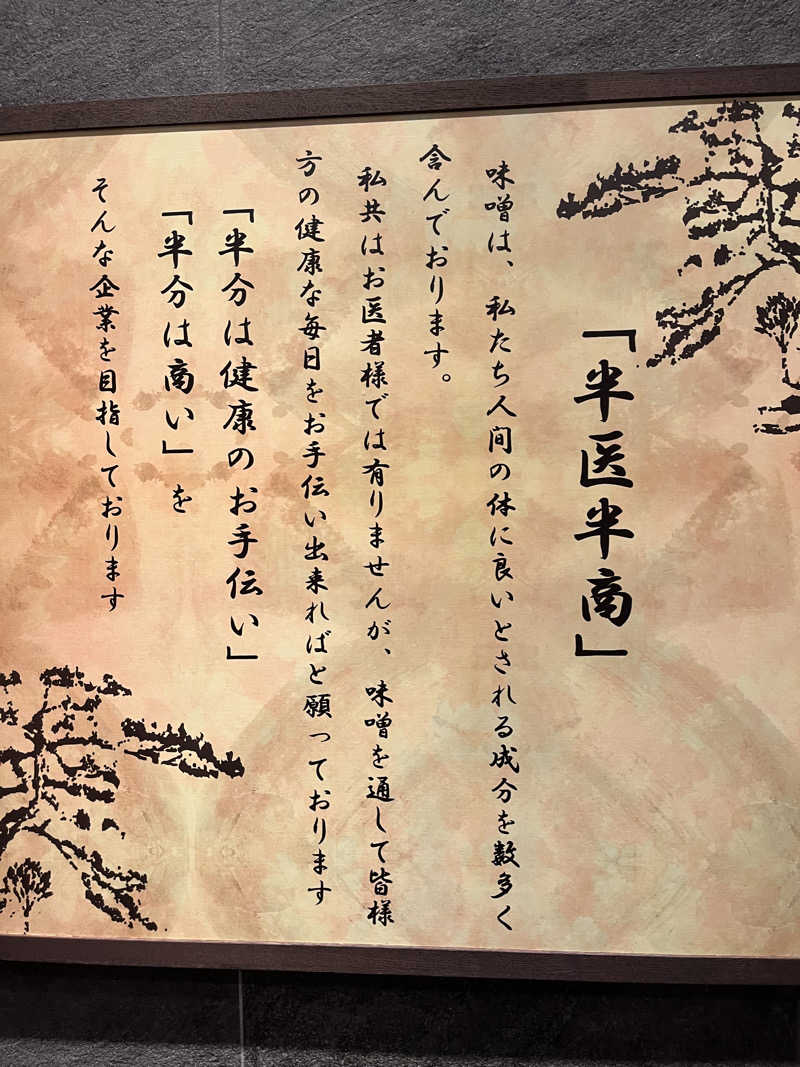 「半医半商」
味噌は、私たち人間の体に良いとされる成分を数多く
含んでおります。
私共はお医者様では有りませんが、味噌を通して皆様
方の健康な毎日をお手伝い出来ればと願っております
「半分は健康のお手伝い」
「半分は商い」を
そんな企業を目指しております